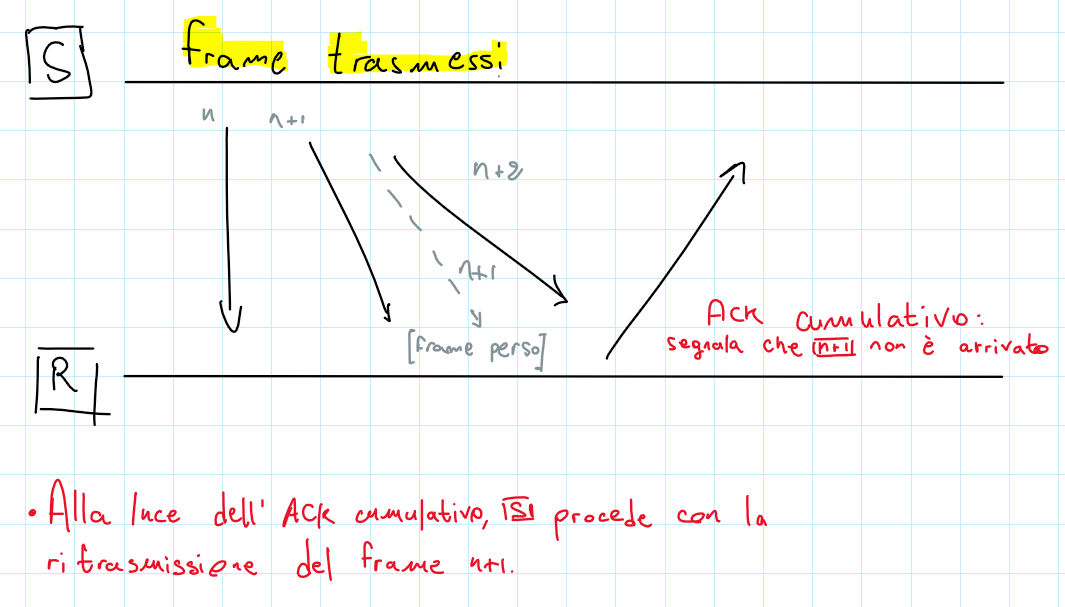 S
frame trasmessi
n
n+1
n+2
n+1
[frame perso]
Ack cumulativo:
segnala che n+1 non è arrivato
R
• Alla luce dell' ACK cumulativo, S procede con la
ritrasmissione del frame n+1.